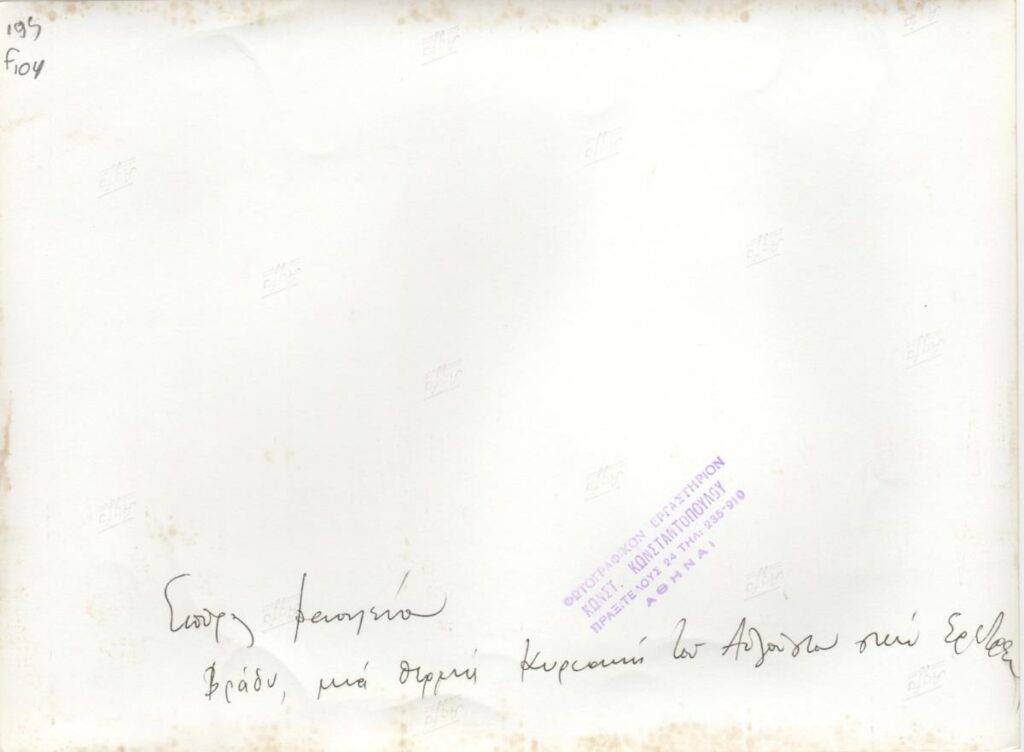 195
F104
ΦΩΤΟΓΡΑΦΙΚΟΝ ΕΡΓΑΣΤΗΡΙΟΝ
ΚΩΝΣΤ. ΚΩΝΣΤΑΝΤΟΠΟΥΛΟΥ
ΠΡΑΞΙΤΕΛΟΥΣ 24 ΤΗΛ: 235-910
ΑΘΗΝΑΙ
Σπύρος
Βράδυ, μιά θερμή Κυριακή του Αυγούστου στην